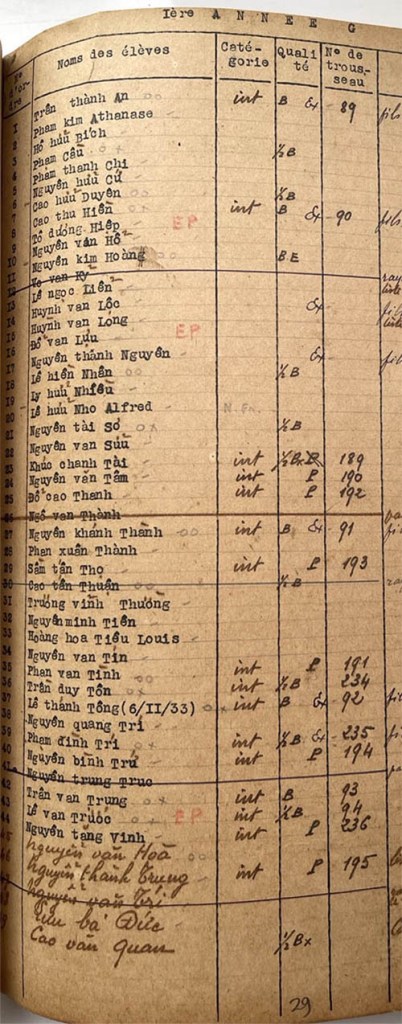 Ière ANNEE G
Noms des élèves Caté- gorie Quali té N° de trous- seau
1 Trần thành An int B Ex 89
2 Phạm kim Athanase
3 Hồ hửu Bích
4 Phạm Cầu ½B
5 Phạm thanh Chi
Nguyễn hửu Cứ
Cao hửu Duyên ½B
Cao thu Hiền int B Ex 90
Tô dương Hiệp EP
10 Nguyễn văn Hồ
11 Nguyễn kim Hoàng BE
Vo van Kỳ
Lê ngọc Liễn
Huỳnh van Lộc Ex
Huỳnh van Long
Đỗ van Lựu EP
Nguyễn thành Nguyên Ex
Lê hiền Nhân ½B
Ly hửu Nhiều
Lê hửu Nho Alfred
Nguyễn tài Sơ ½B
Nguyễn van Sửu
Khúc chanh Tài int ½B 189
Nguyễn van Tâm int P 190
25 Đỗ cao Thanh int P 192
26 Ngô van Thành
27 Nguyễn khánh Thành int B Ex 91
28 Phan xuân Thành
29 Sầm tấn Thọ int P 193
30 Cao tấn Thuận ½B
31 Trương vĩnh Thường
32 Nguyễn minh Tiên
33 Hoàng hoa Tiểu Louis
34 Nguyễn van Tín
35 Phan van Tinh int P 191
36 Trần duy Tôn int ½B 234
37 Lê thành Tống(6/II/33) int B Ex 92
38 Nguyễn quang Tri
39 Phạm đình Trí int ½B Ex 235
40 Nguyễn bình Trứ int P 194
41 Nguyễn trung Truc
42 Trần van Trung int B 93
43 Lê van Trước EP int ½B 94
44 Nguyễn tặng Vinh int P 236
Nguyễn văn Hoà
Nguyễn thành Trung int P 195
Nguyễn văn Trí
Lưu bá Đức
Cao văn Quan ½B
29